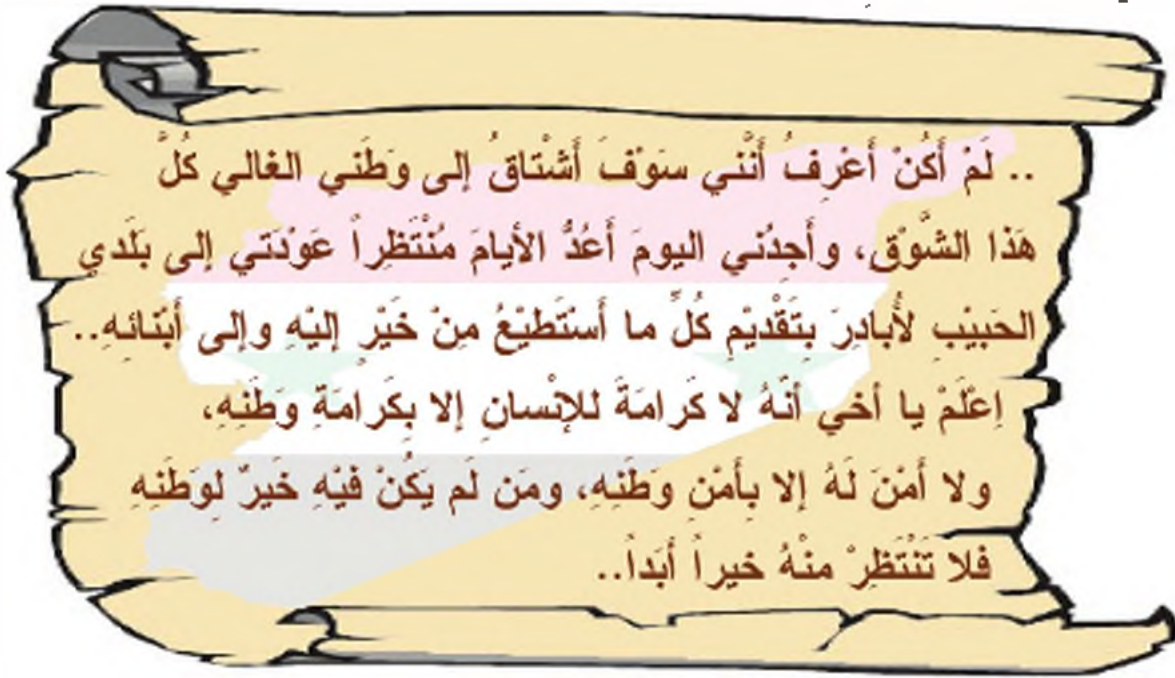 .. لَمْ أَكُنْ أَعْرِفُ أَنَّني سَوْفَ أَشْتاقُ إلى وَطَني الغالي كُلَّ
هَذا الشَّوْقِ، وأَجِدُني اليومَ أَعُدُّ الأيامَ مُنْتَظِراً عَوْدَتي إلى بَلَدي
الحَبيْبِ لأُبادِرَ بِتَقْديْمِ كُلِّ ما أَسْتَطيْعُ مِنْ خَيْرٍ إليْهِ وإلى أَبْنائهِ..
اِعْلَمْ يا أخي أنّهُ لا كَرامَةَ للإنْسانِ إلا بِكَرامَةِ وَطَنِهِ،
ولا أَمْنَ لَهُ إلا بِأَمْنِ وَطَنِهِ، ومَن لَم يَكُنْ فيْهِ خَيرٌ لِوَطَنِهِ
فلا تَنْتَظِرْ منْهُ خيراً أبَداً..